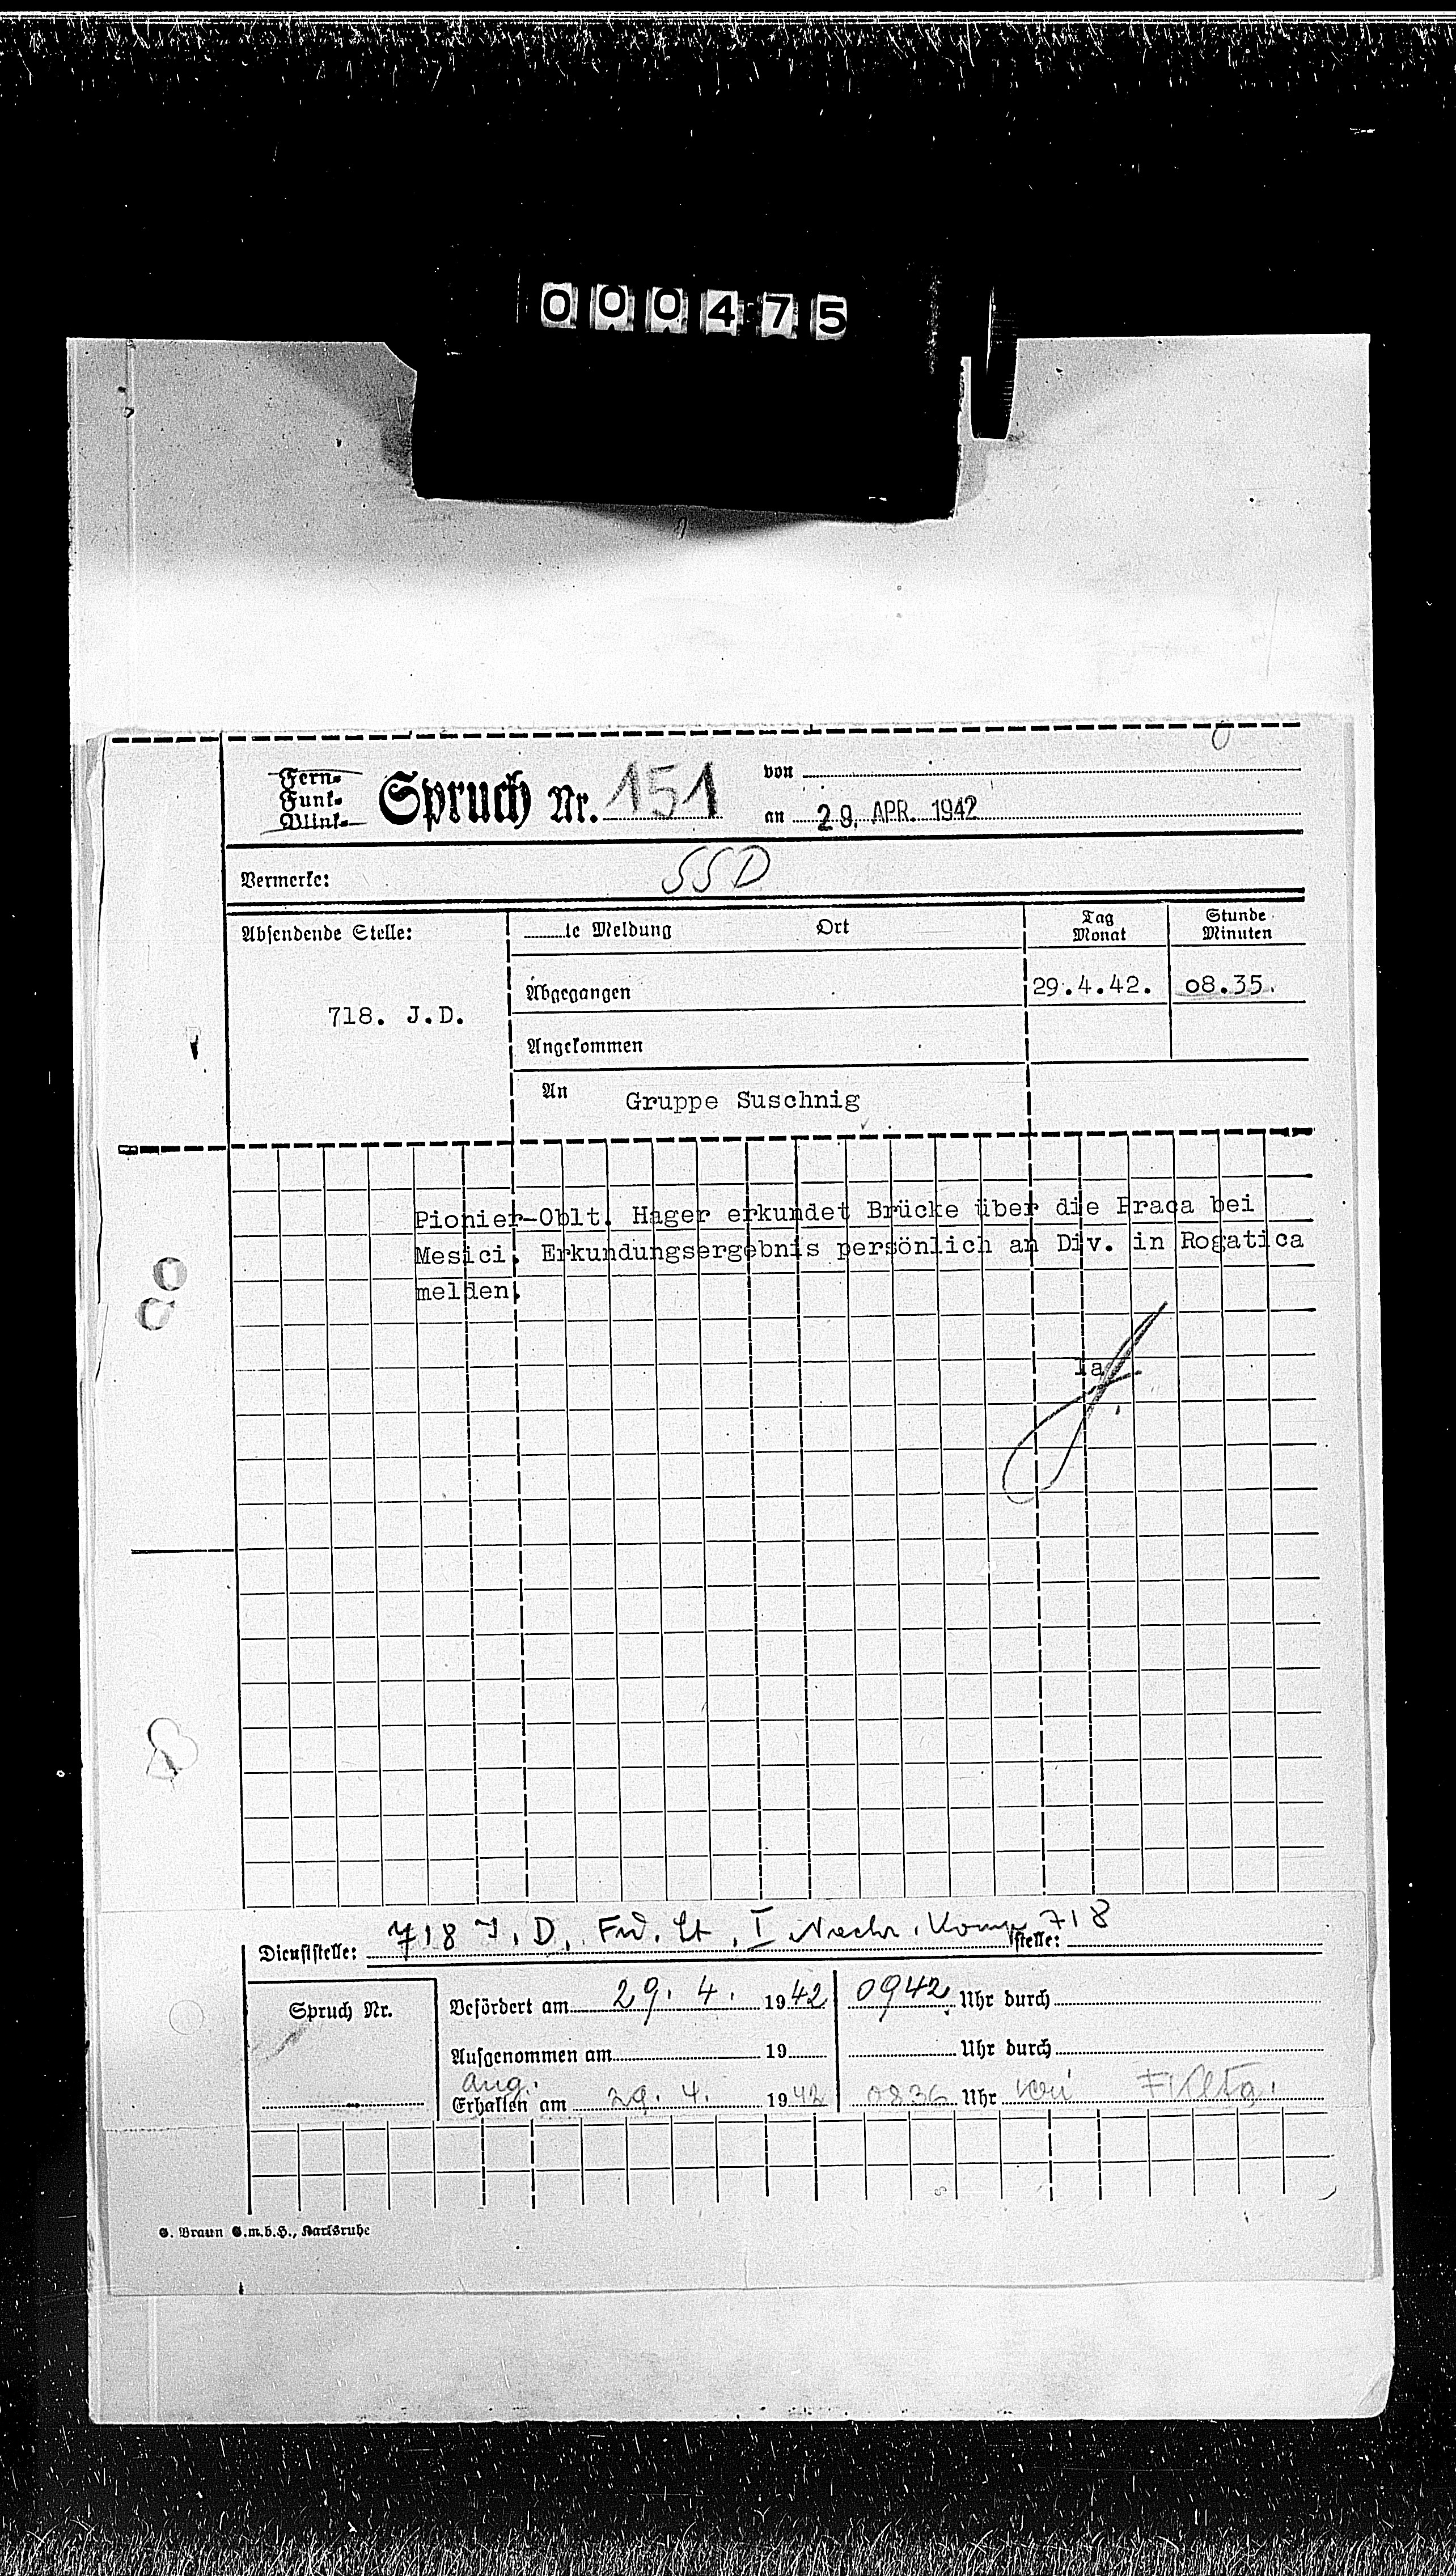 000475
Fern-
Funk-
Blink-
Spruch Nr. 151
von
an 29. APR. 1942
Vermerke: SSD
Absendende Stelle:
718. J.D.
te Meldung Ort Tag Monat Stunde Minuten
Abgegangen 29.4.42. 08.35.
Angekommen
An Gruppe Suschnig
Pionier-Oblt. Hager erkundet Brücke über die Praca bei
Mesici. Erkundungsergebnis persönlich an Div. in Rogatica
melden.
Ia
Dienststelle: 718 I. D. Fu. St. I Nachr. Komp 718 stelle:
Spruch Nr.
Befördert am 29. 4. 1942 0942 Uhr durch
Aufgenommen am 19 Uhr durch
Ang.
Erhalten am 29. 4. 1942 0836 Uhr
G. Braun G.m.b.H., Karlsruhe